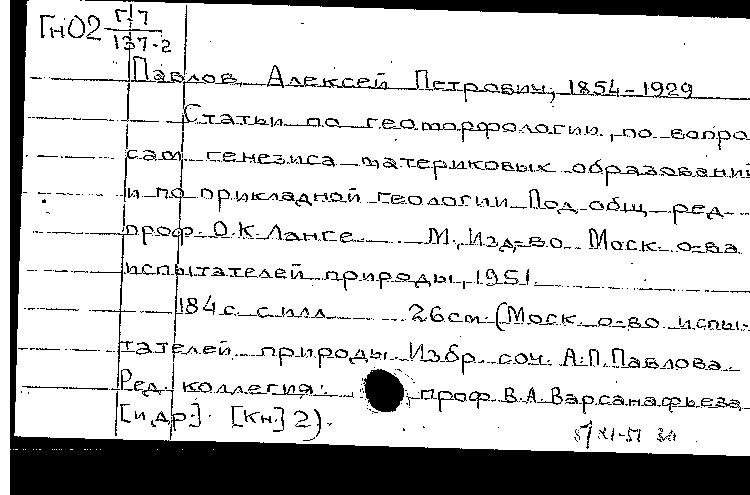 ГнО2 Г17
137-2
Павлов, Алексей Петрович, 1854-1929
Статьи по геоморфологии, по вопро
сам генезиса материковых образований
и по прикладной геологии Под общ ред.
проф. О.К. Ланге М., Изд-во Моск о-ва
испытателей природы, 1951
184 с. с илл 26 см. (Моск. о-во испы-
тателей природы Избр. соч. А.П. Павлова
Ред. коллегия: проф. В.А. Варсанафьева
[и др.]. [Кн.] 2).